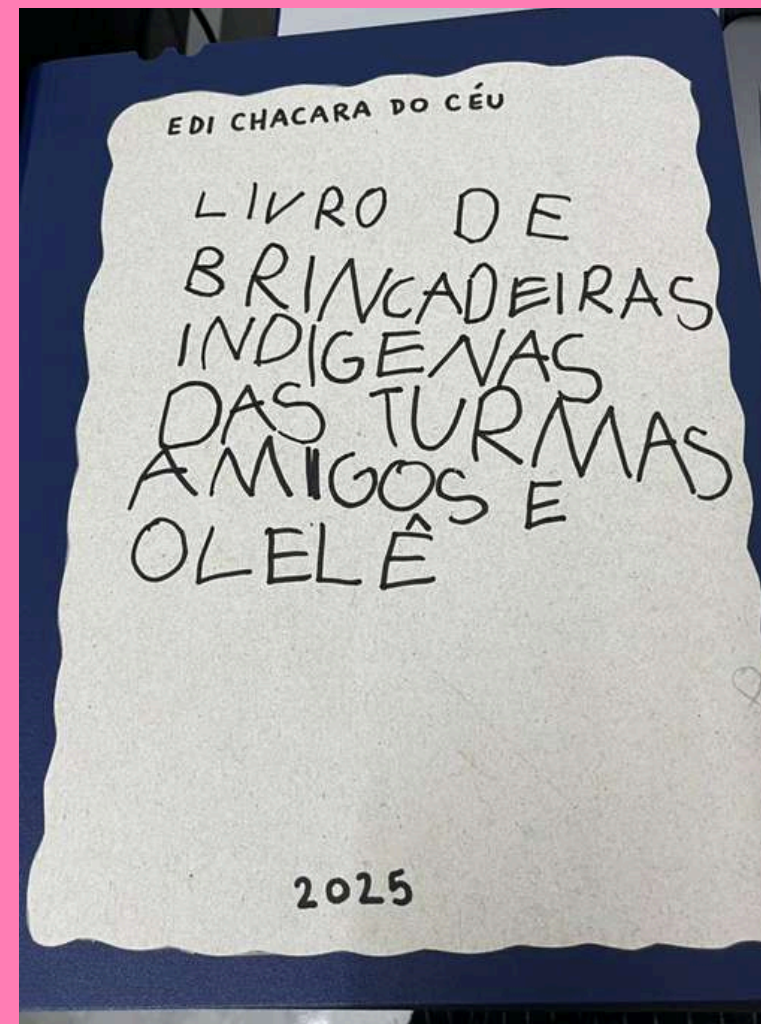 EDI CHACARA DO CÉU
LIVRO DE
BRINCADEIRAS
INDIGENAS
DAS TURMAS
AMIGOS E
OLELÊ
2025